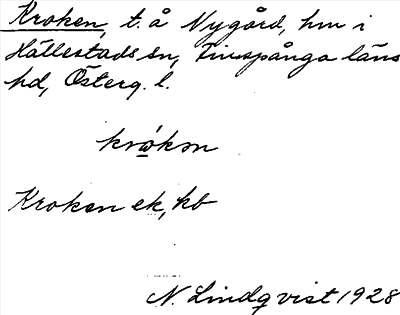 Kroken, t. å Nygård, hm i
Hällestads sn, Finspånga läns
hd, Österg. l.
krókən
Kroken ek, kb
N. Lindqvist 1928